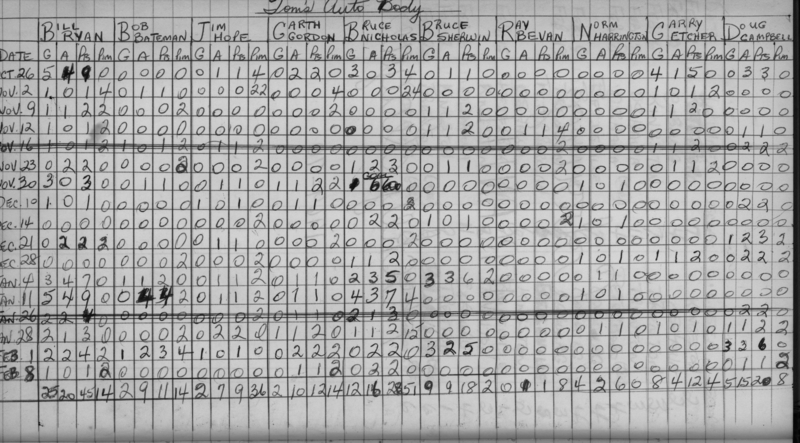 Toms Auto Body
BILL RYAN BOB BATEMAN JIM HOPE GARTH GORDON BRUCE NICHOLAS BRUCE SHERWIN RAY BEVAN NORM HARRINGTON GARRY ETCHER DOUG CAMPBELL
DATE G A Pts Pim G A Pts Pim G A Pts Pim G A Pts Pim G A Pts Pim G A Pts Pim G A Pts Pim G A Pts Pim G A Pts Pim G A Pts Pim
OCT. 26 5 4 9 0 0 0 0 0 0 1 1 4 0 2 2 0 3 0 3 4 0 1 1 0 0 0 0 0 0 0 0 0 4 1 5 0 0 3 3 0
NOV. 2 1 0 1 4 0 1 1 0 0 0 0 22 0 0 0 4 0 0 0 24 0 0 0 0 0 0 0 0 0 0 0 0 1 0 1 2 0 0 0 0
NOV. 9 1 1 2 2 0 0 0 2 0 0 0 0 0 0 0 2 0 0 0 0 1 1 2 0 0 0 0 0 0 0 0 0 1 1 2 0 0 0 0 0
NOV. 12 1 0 1 2 0 0 0 0 0 0 0 0 0 0 0 0 0 0 0 0 1 1 2 0 0 1 1 4 0 0 0 0 0 0 0 0 0 1 1 0
NOV. 16 1 0 1 2 1 0 1 2 0 1 1 2 0 0 0 0 0 0 0 0 0 0 0 0 0 0 0 2 0 0 0 0 1 1 2 0 0 2 2 2
NOV. 23 0 2 2 0 0 0 0 2 0 0 0 2 0 0 0 0 1 2 3 0 0 1 1 0 0 0 0 2 0 0 0 0 0 1 1 2 0 0 0 0
NOV. 30 3 0 3 0 0 1 1 0 0 1 1 0 1 1 2 2 6 6 0 0 0 0 0 0 0 0 0 1 0 1 0 0 0 0 0 0 0 0 0
DEC. 10 1 0 1 0 0 0 0 0 1 0 1 0 0 1 1 0 0 0 0 2 0 0 0 0 0 0 0 0 0 0 0 0 0 0 0 0 0 2 2 0
DEC. 14 0 0 0 0 0 0 0 0 0 0 0 2 0 0 0 0 0 2 2 0 1 0 1 0 0 0 0 2 1 0 1 0 0 0 0 0 0 0 0 0
DEC. 21 0 2 2 2 0 0 0 0 0 1 1 0 0 0 0 2 0 0 0 2 0 0 0 0 0 0 0 0 0 0 0 0 0 0 0 0 1 2 3 2
DEC 28 0 0 0 0 0 0 0 2 0 0 0 2 0 0 0 0 1 1 2 0 0 0 0 0 0 0 0 0 1 0 1 0 1 1 2 0 0 2 2 2
JAN. 4 3 4 7 0 1 1 2 0 0 1 1 2 0 1 1 0 2 3 5 0 3 3 6 2 0 0 0 0 0 1 1 0 0 0 0 0 0 0 0 0
JAN 11 5 4 9 0 0 4 4 2 0 1 1 2 0 1 1 0 4 3 7 4 0 0 0 0 0 0 0 0 1 0 1 0 0 0 0 0 0 0 0 0
JAN 26 2 2 4 0 0 0 0 0 0 0 0 2 0 1 1 0 2 1 3 0 0 0 0 0 0 0 0 0 0 0 0 0 0 0 0 0 0 2 2 0
JAN. 28 2 1 3 0 0 0 0 2 0 2 2 0 1 1 2 0 1 1 2 15 0 0 0 0 0 0 0 0 0 1 1 0 1 0 1 0 1 1 2 2
FEB 1 2 2 4 2 1 2 3 4 1 0 1 0 0 2 2 2 0 2 2 0 3 2 5 0 0 0 0 0 0 0 0 0 0 0 0 0 3 3 6 0
FEB 8 1 0 1 2 0 0 0 0 0 0 0 0 0 1 1 2 0 2 2 2 0 0 0 0 0 0 0 0 0 0 0 0 0 0 0 0 0 1 1 2
25 20 45 14 2 9 11 14 2 7 9 36 2 10 12 14 12 16 28 51 9 9 18 2 0 1 1 8 4 2 6 0 8 4 12 4 5 15 20 8